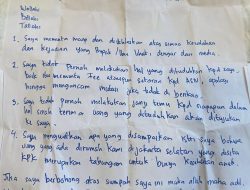 Wallahi
Billahi
Tallahi
1. Saya meminta maaf dan disebabkan atas semua kesalahan
dan kejadian yang Bapak/Ibu lihat, dengar dari media.
2. Saya tidak pernah melakukan hal yang dituduhkan kpd saya
baik itu meminta Fee ataupun setoran kpd ASN apalagi
hingga mengancam mutasi jika tidak di berikan
3. Saya tidak pernah melakukan janji temu kpd siapapun dalam
serah terima uang yang dituduhkan akan
4. Saya menguatkan apa yang disampaikan istri saya bahwa
uang yang ada dirumah kami di Jakarta Selatan yang disita
KPK merupakan tabungan untuk biaya kesehatan anak.
Jika saya berbohong atas sumpah saya ini maka allah